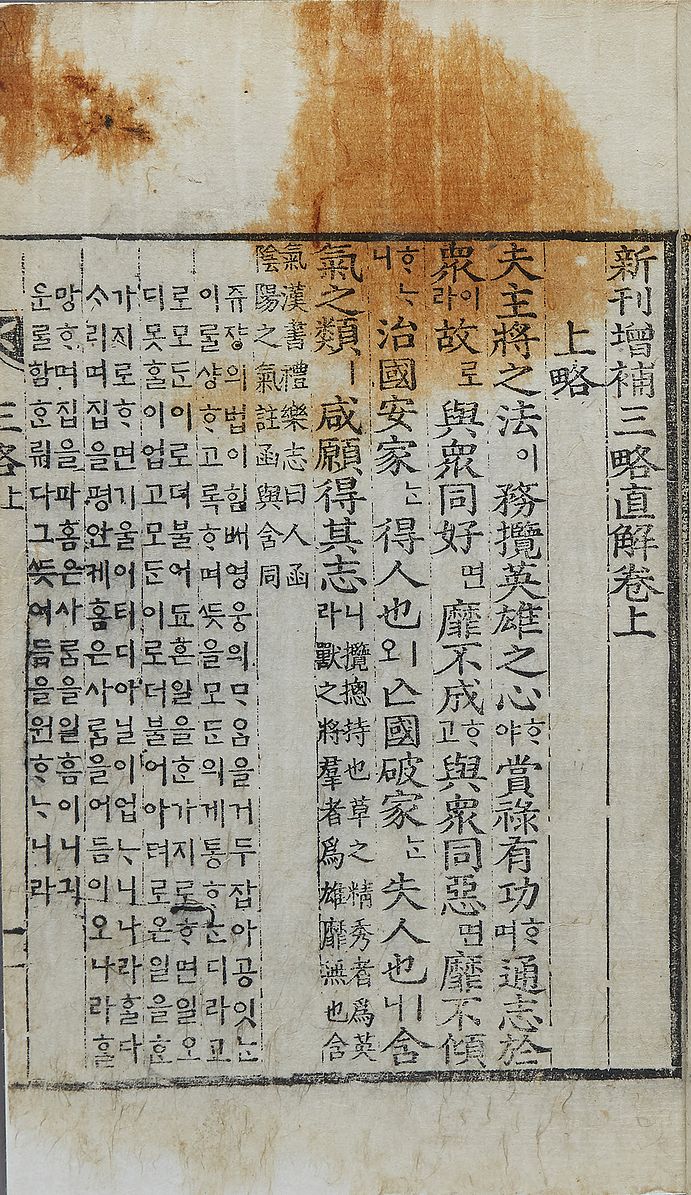 新刊增補三略直解卷上
上略
夫主將之法이務攬英雄之心ᄒᆞ야賞祿有功ᄒᆞ며通志於
衆이라故로與衆同好면靡不成ᄒᆞ고與衆同惡면靡不傾
ᄒᆞᄂᆞ니治國安家ᄂᆞᆫ得人也오亾國破家ᄂᆞᆫ失人也ㅣ니含
氣之類ㅣ咸願得其志니라
攬摠持也草之精秀者爲英
獸之將羣者爲雄靡無也含
氣漢書禮樂志曰人函
陰陽之氣註函與含同
쥬쟝의법이힘ᄡᅥ영웅의ᄆᆞᄋᆞᆷ을거두잡아공잇ᄂᆞᆫ
이ᄅᆞᆯ샹ᄒᆞ고록ᄒᆞ며ᄯᅳᆺ을모ᄃᆞᆫ의게통ᄒᆞᄂᆞᆫ디라고
로모ᄃᆞᆫ이로뎌불어됴흔일을ᄒᆞᆫ가지로ᄒᆞ면일오
디못ᄒᆞᆯ이업고모ᄃᆞᆫ이로더불어아텨로온일을ᄒᆞᆫ
가지로ᄒᆞ면기울어티디아닐이업ᄂᆞ니나라흘다
ᄉᆞ리며집을평안케홈은사ᄅᆞᆷ을어듬이오나라흘
망ᄒᆞ며집을파홈은사ᄅᆞᆷ을일홈이니긔
운를함ᄒᆞᆫ뤼다그ᄯᅳᆺ여듬을원ᄒᆞᄂᆞ니라
三略上
一